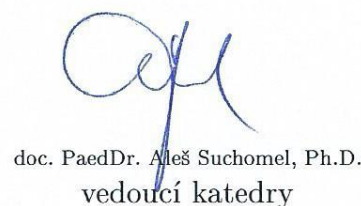 doc. PaedDr. Aleš Suchomel, Ph.D.
vedoucí katedry